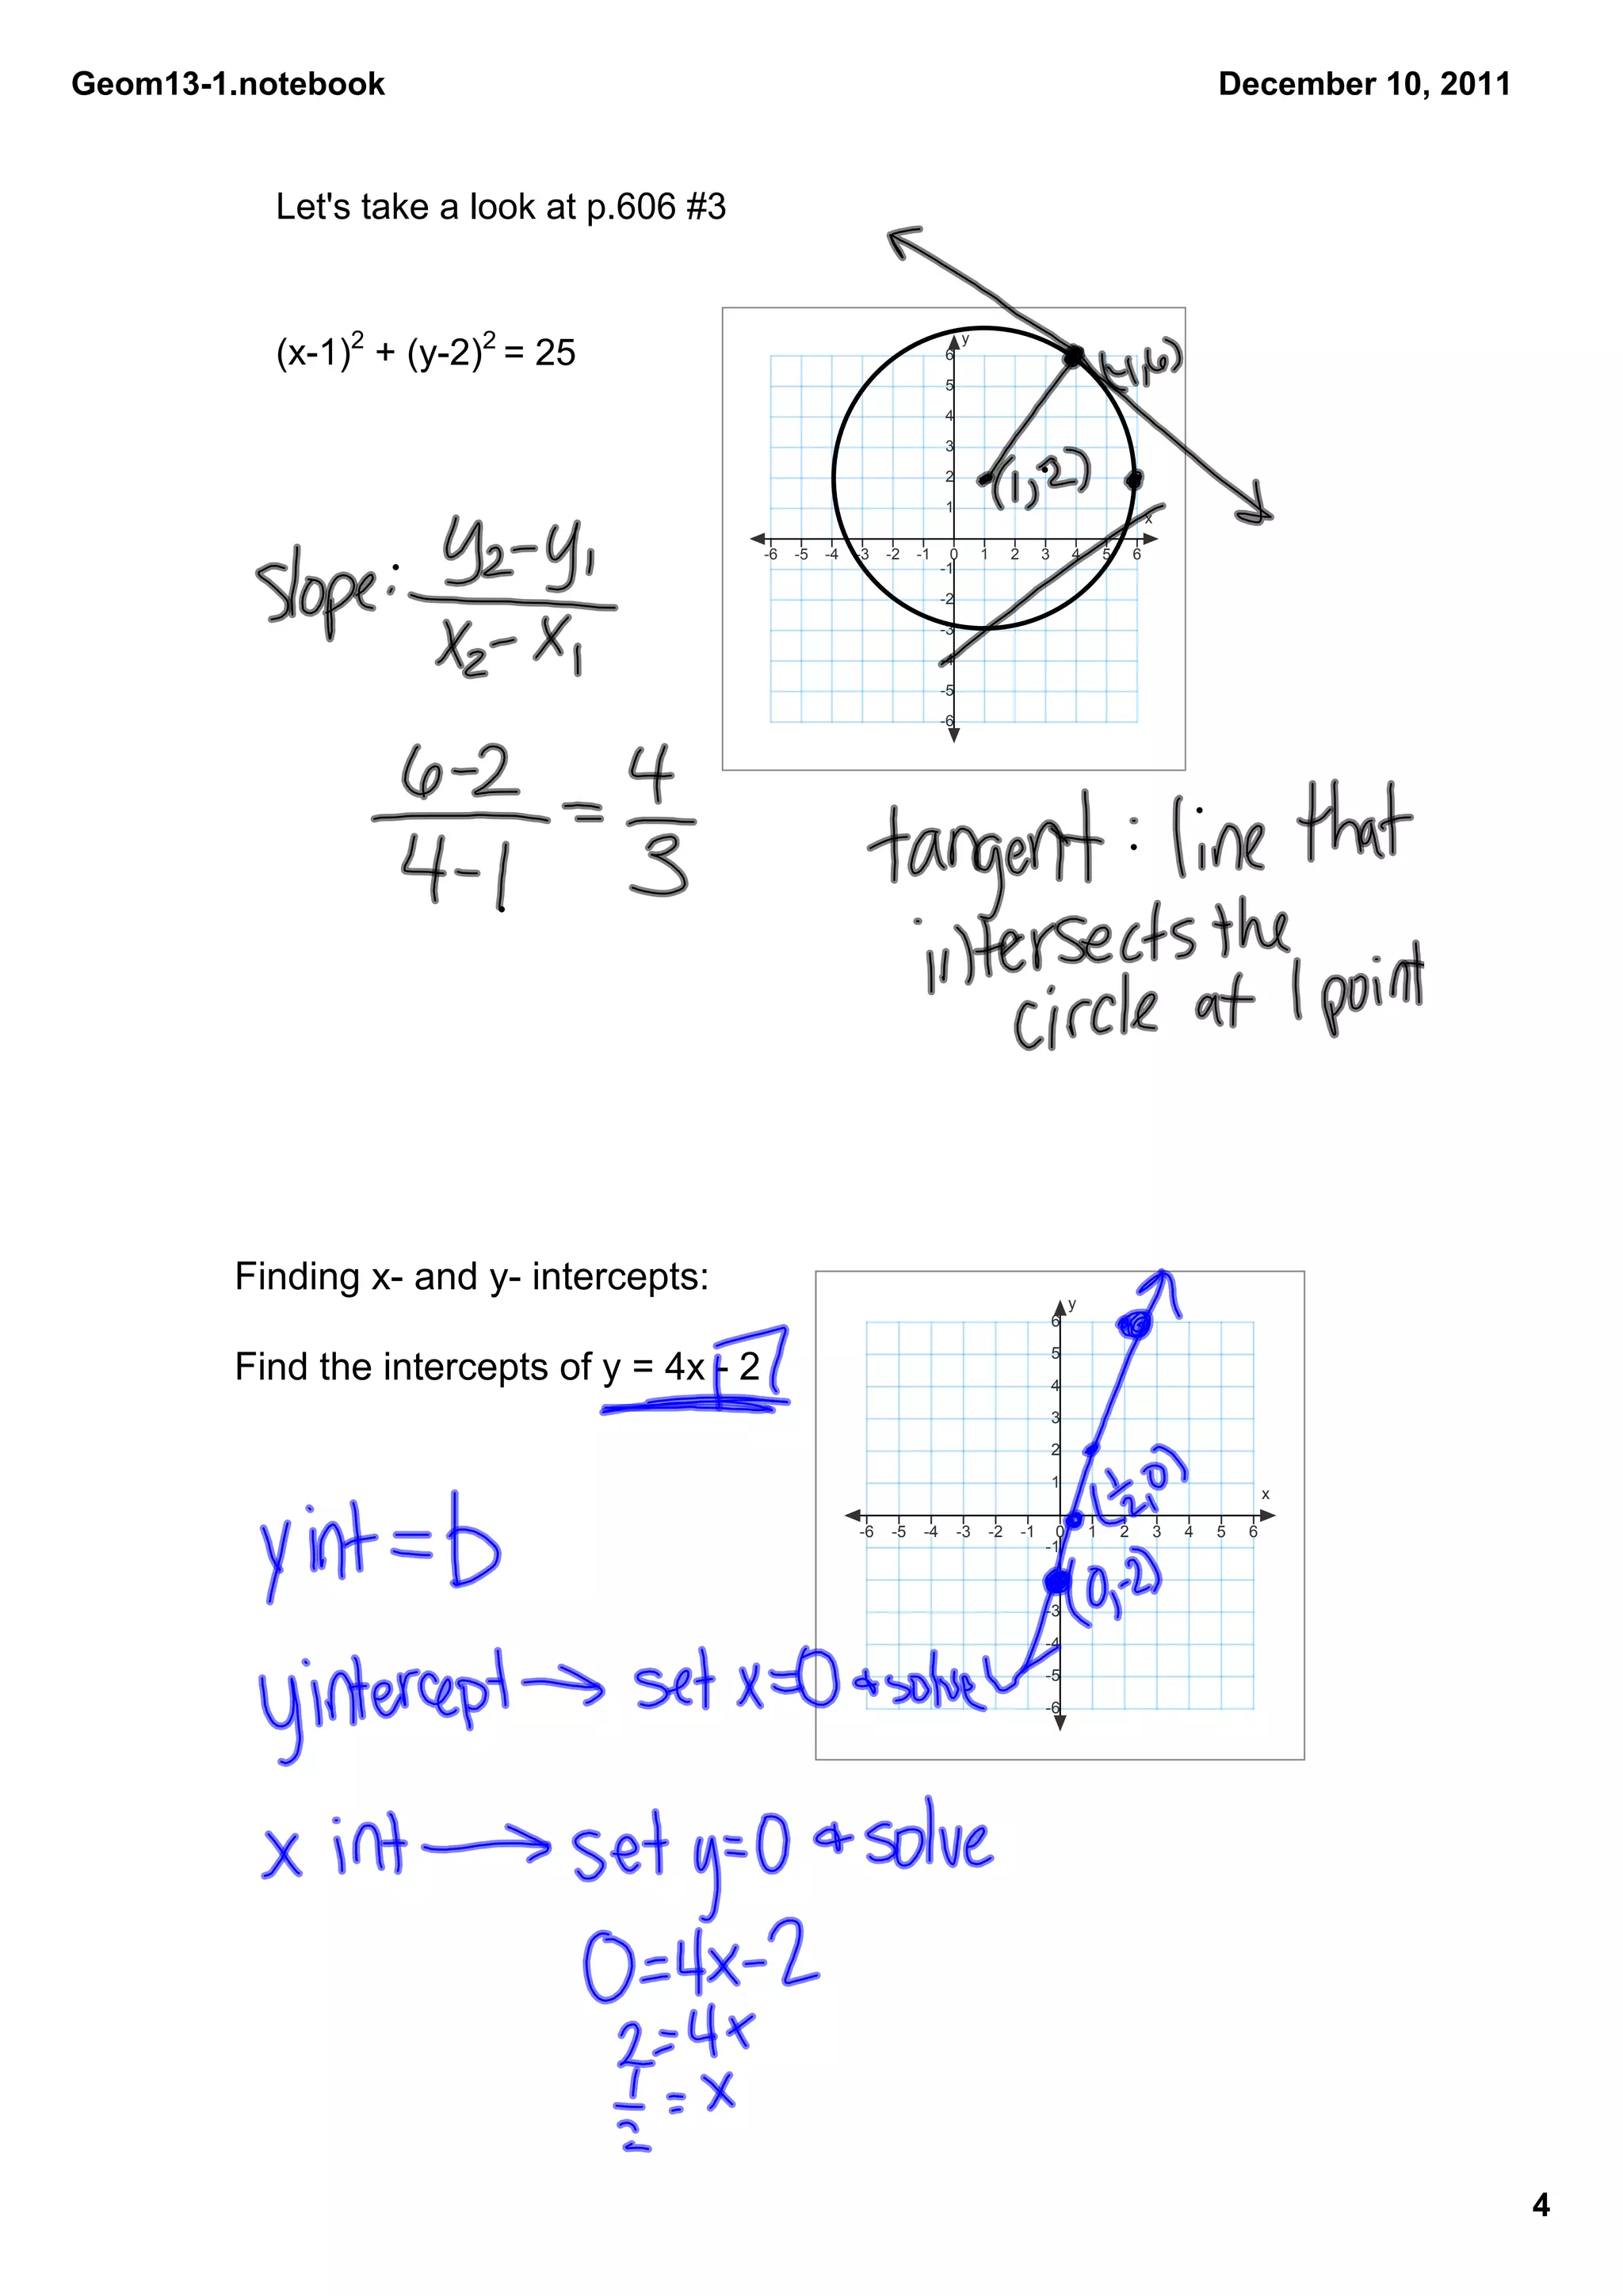 Geom13-1.notebook
December 10, 2011
Let's take a look at p.606 #3
(x-1)² + (y-2)² = 25
y
6
5
4
3
2
1
x
-6 -5 -4 -3 -2 -1 0 1 2 3 4 5 6
-1
-2
-3
-4
-5
-6
(4,6)
(1,2)
slope: y₂-y₁
x₂-x₁
6-2 = 4
4-1 3
tangent: line that
intersects the
circle at 1 point
Finding x- and y- intercepts:
Find the intercepts of y = 4x - 2
y
6
5
4
3
2
1
x
-6 -5 -4 -3 -2 -1 0 1 2 3 4 5 6
-1
-3
-4
-5
-6
(½,0)
(0,-2)
y int = b
y intercept → set x=0 & solve
x int → set y=0 & solve
0=4x-2
2=4x
½ = x
4